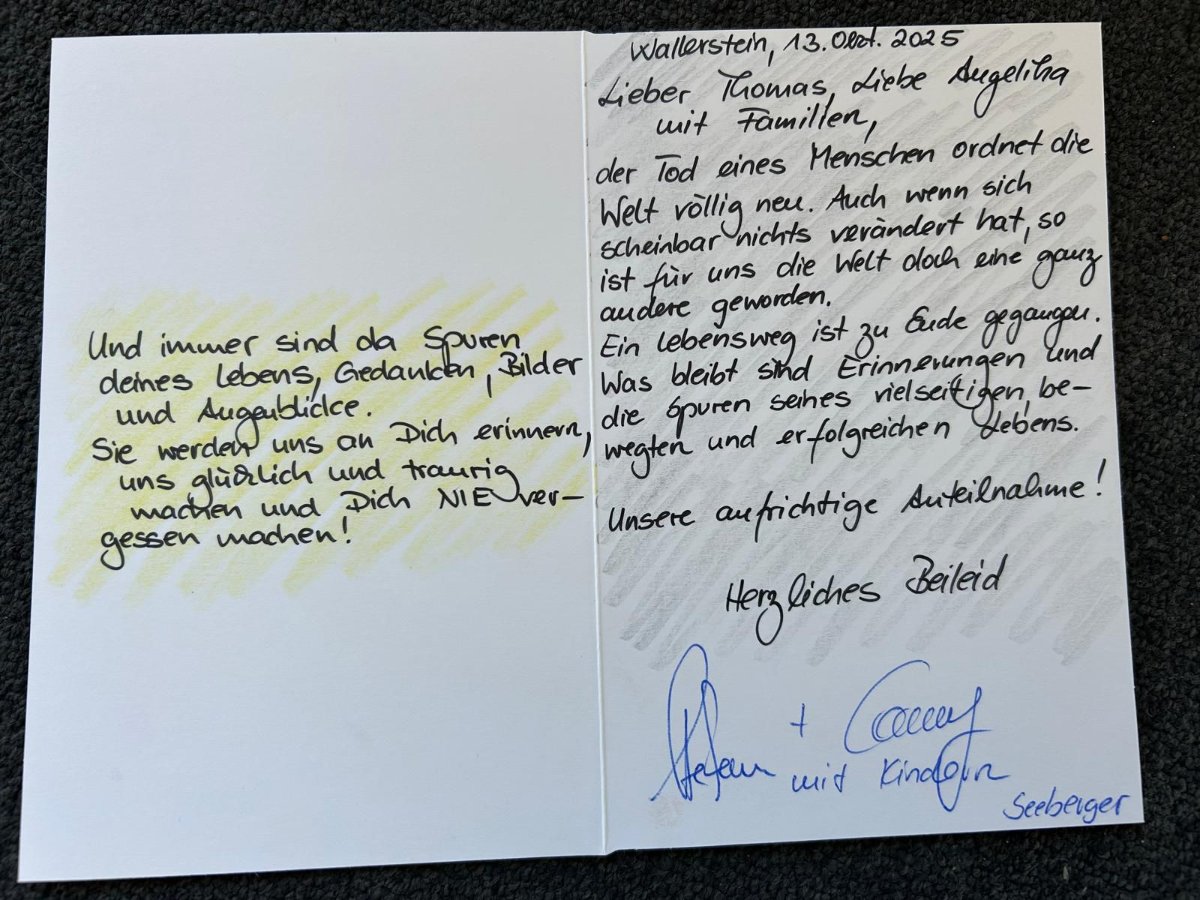 Und immer sind da Spuren
deines Lebens, Gedanken, Bilder
und Augenblicke.
Sie werden uns an Dich erinnern,
uns glücklich und traurig
machen und Dich NIE ver-
gessen machen!
Wallerstein, 13. Okt. 2025
Lieber Thomas, Liebe Angelika
mit Familien,
der Tod eines Menschen ordnet die
Welt völlig neu. Auch wenn sich
scheinbar nichts verändert hat, so
ist für uns die Welt doch eine ganz
andere geworden.
Ein Lebensweg ist zu Ende gegangen.
Was bleibt sind Erinnerungen und
die Spuren seines vielseitigen, be-
wegten und erfolgreichen Lebens.
Unsere aufrichtige Anteilnahme!
Herzliches Beileid
Stefan +
mit Kindern
Seeberger